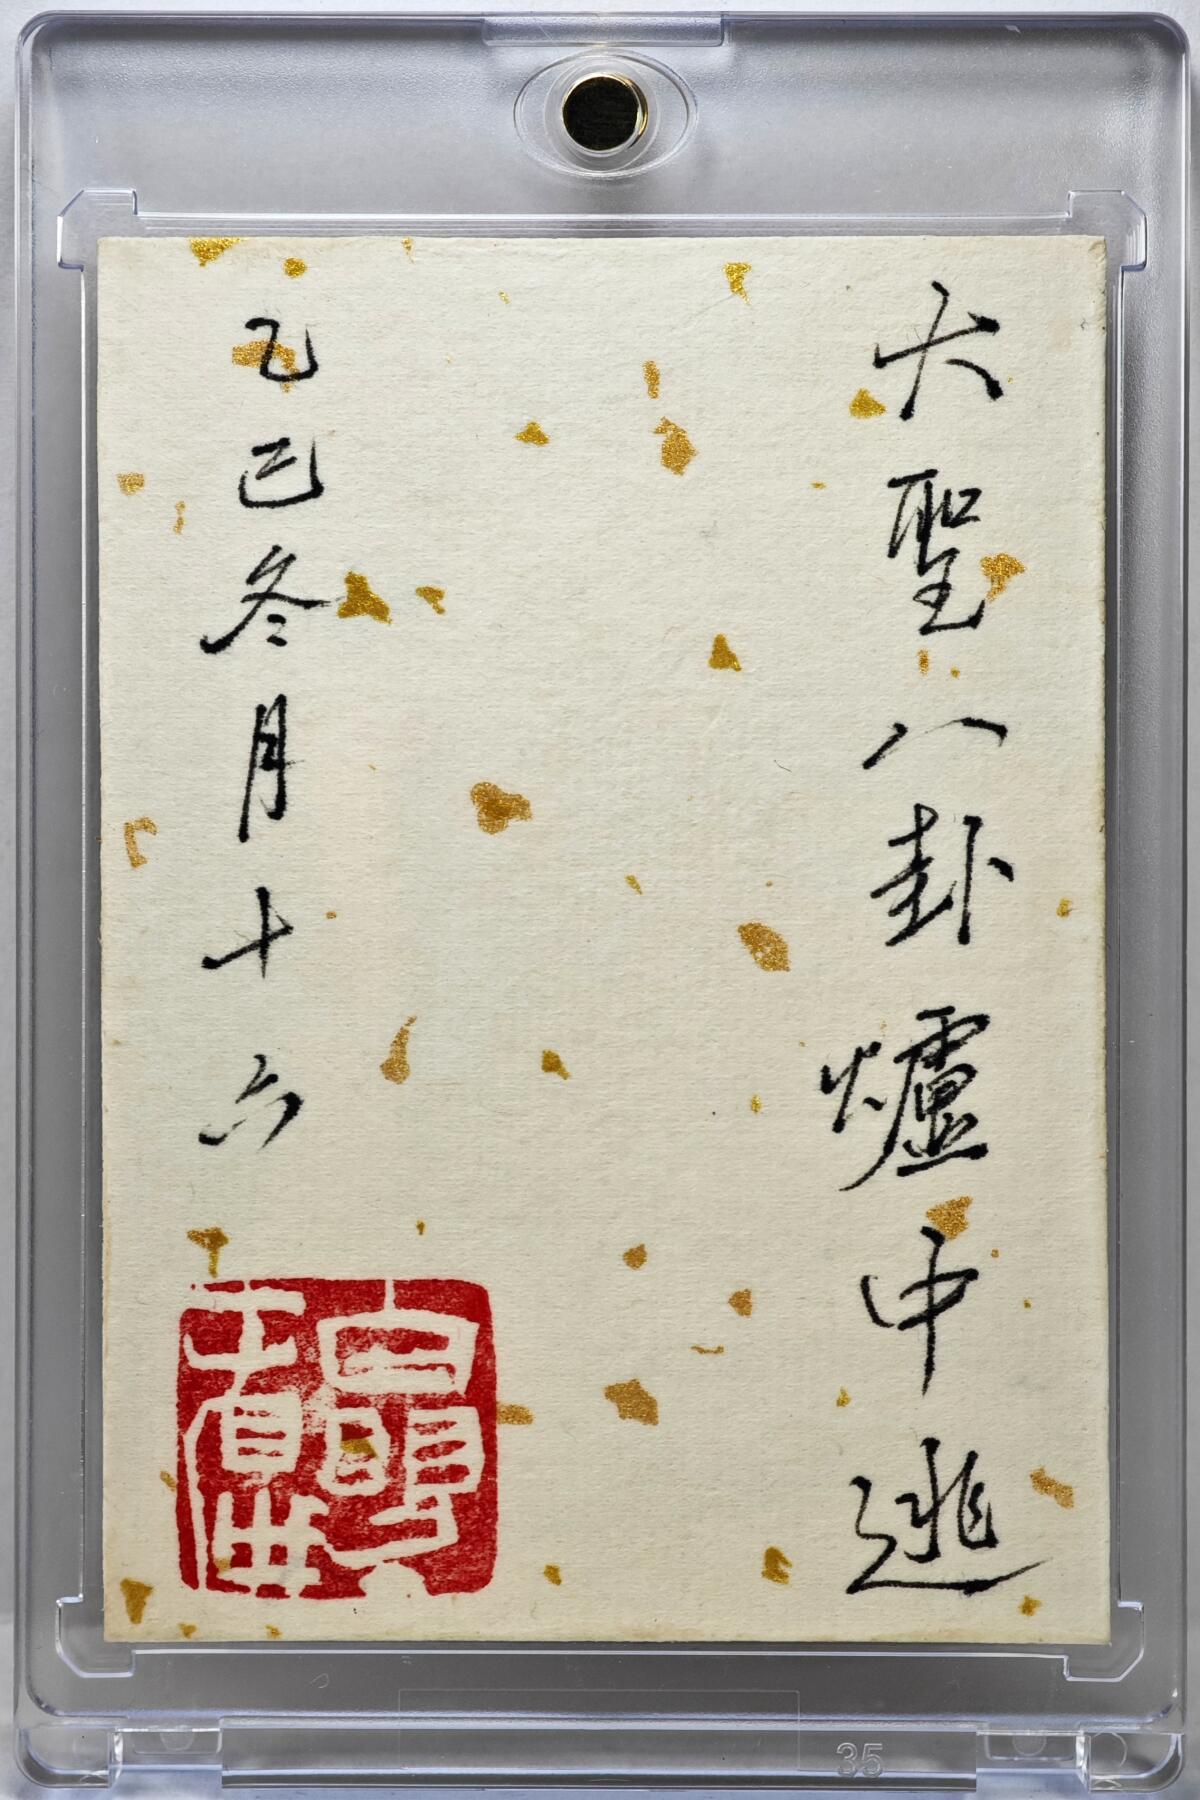 大聖八卦爐中逃
乙巳冬月十六
35